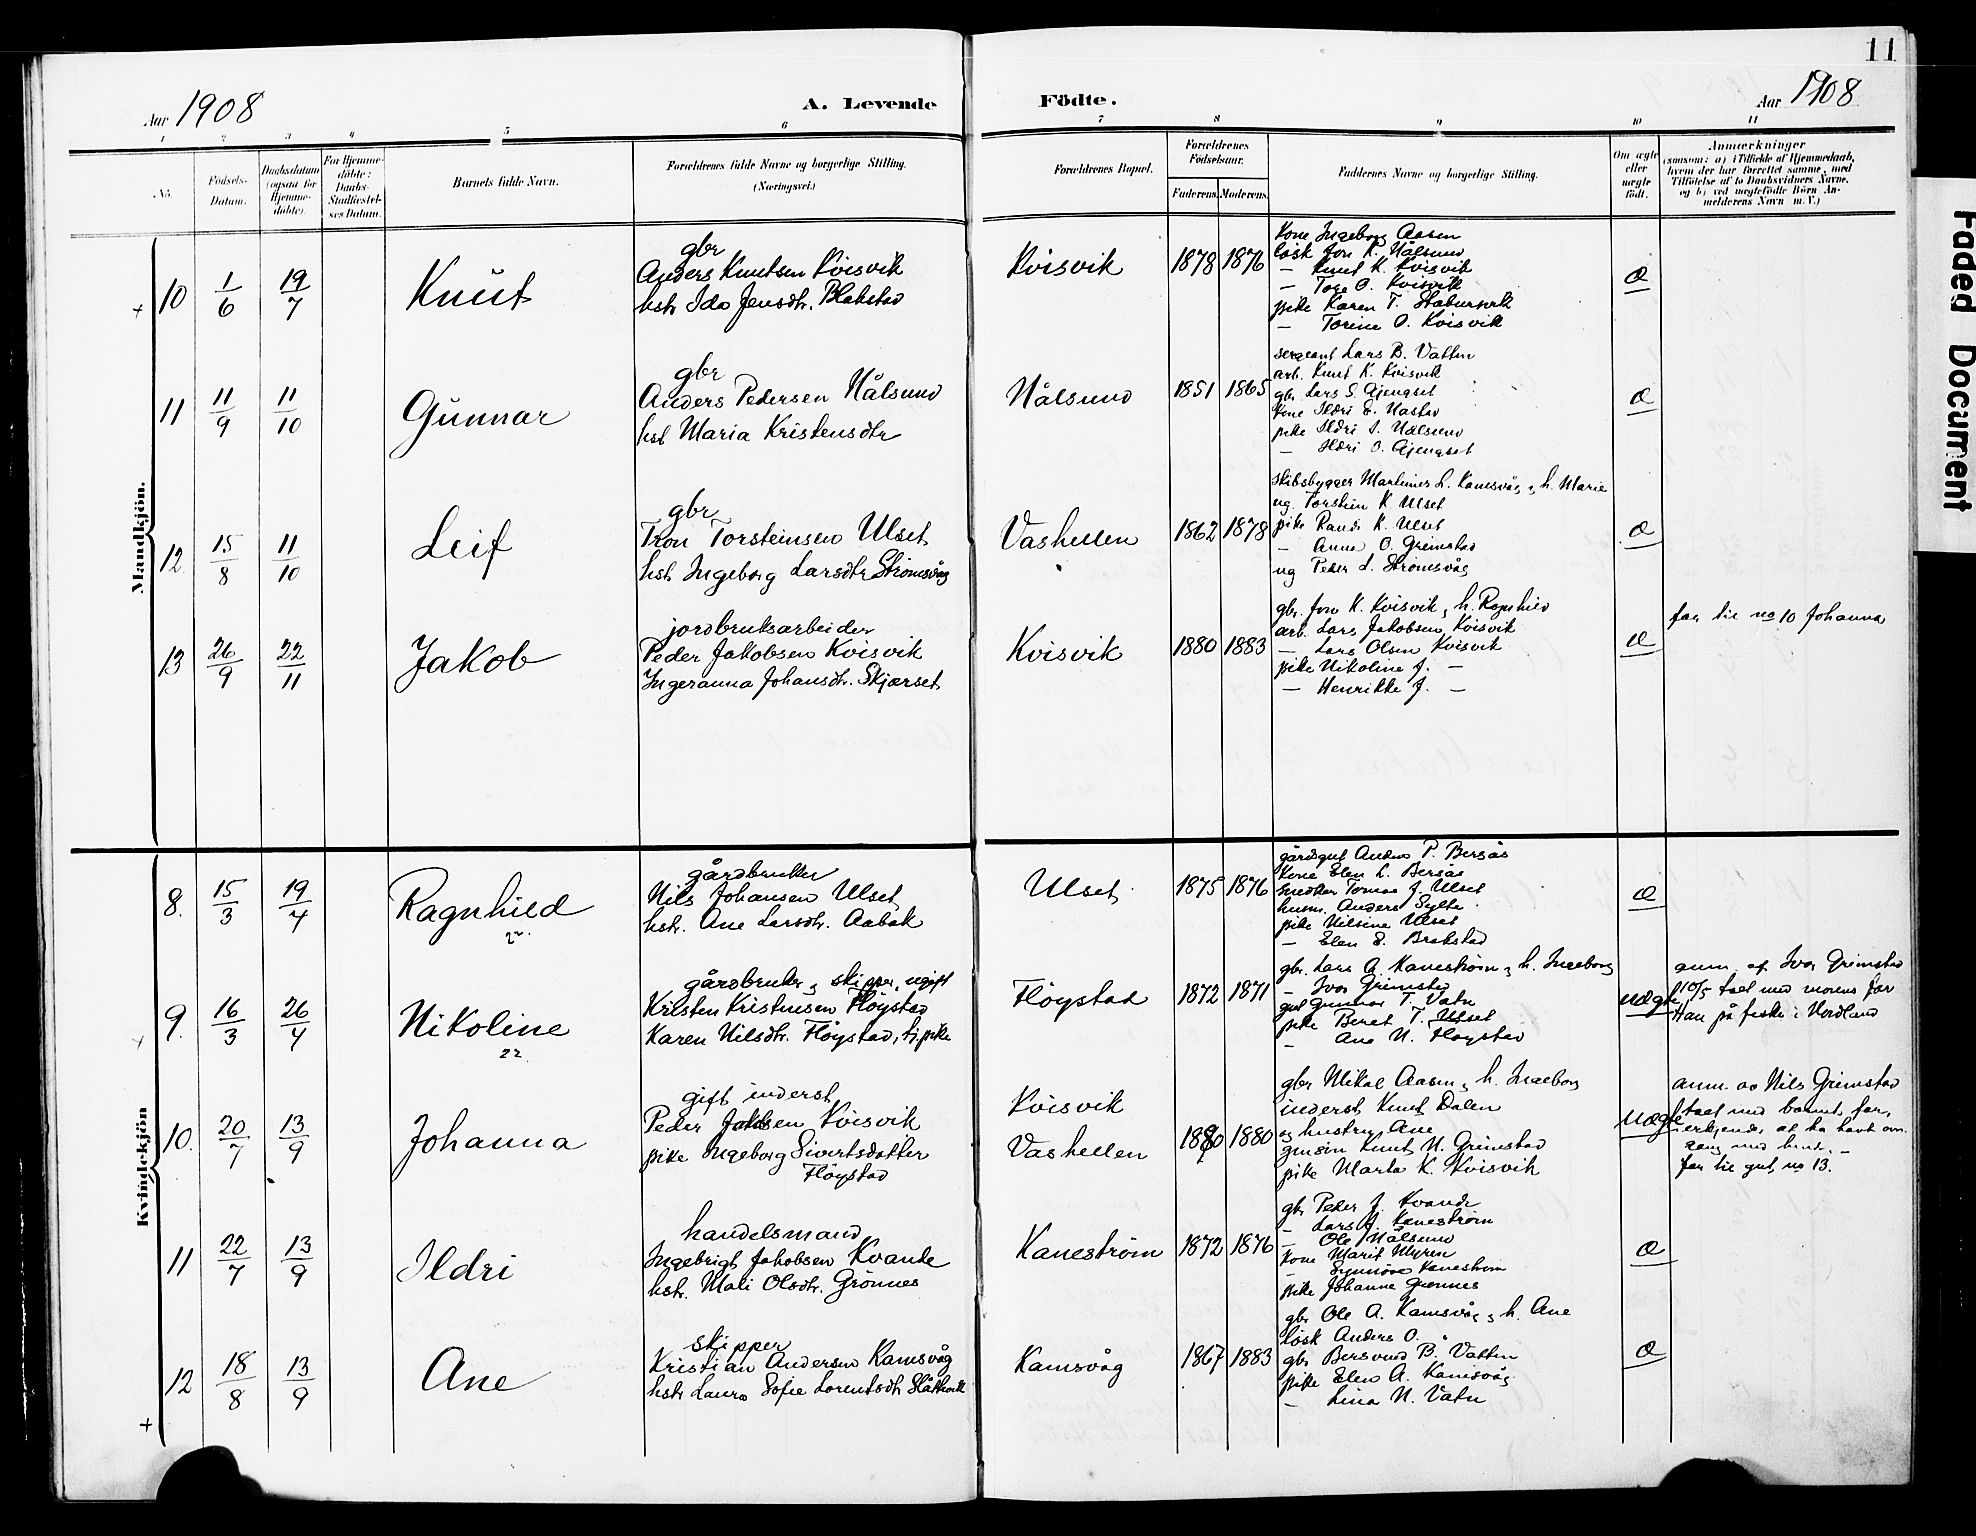 11
Aar 1908
A. Levende
Födte.
Aar 1908
1 2 3 4 5 6 7 8 9 10 11
No.
Födsels-
Datum.
Daabsdatum
(ogsaa for
Hjemme-
döbte).
For Hjemme-
döbte:
Daabs-
Stadfæstel-
ses Datum.
Barnets fulde Navn.
Forældrenes fulde Navne og borgerlige Stilling.
(Næringsvei.)
Forældrenes Bopæl.
Forældrenes
Födselsaar.
Faderens. Moderens.
Faddernes Navne og borgerlige Stilling.
Om ægte
eller
uægte
födt.
Anmærkninger
(saasom: a) i Tilfælde af Hjemmedaab,
hvem der har forrettet samme, med
Tilföielse af to Daabsvidners Navne,
og b) ved uegtefödte Börn An-
melderens Navn m. V.)
Mandkjön.
10 1/6 19/7 Knut
gbr
Anders Knutsen Kvisvik
hstr Ida Jensdtr. Blakstad
Kvisvik 1878 1876
kone Ingeborg Aasen
løsk Jon K. Nålsund
— Knut K. Kvisvik
— Tore O. Kvisvik
pike Karen T. Stabursvik
— Torine O. Kvisvik
æ
11 11/9 11/10 Gunnar
gbr
Anders Pedersen Nålsund
hst Maria Kristensdtr
Nålsund 1851 1865
sergeant Lars B. Vatten
arb. Knut K. Kvisvik
gbr. Lars S. Gjengset
kone Ildri E. Nastad
pike Ildri I. Nålsund
— Ildri O. Gjengset
æ
12. 15/8 11/10 Leif
gbr
Tron Torsteinsen Ulset
hst. Ingeborg Larsdtr Strömsvåg
Vashellen 1862 1878
skibsbygger Martinus L. Kamsvåg, h. Marie
ug. Torstein K. Ulset
pike Randi K. Ulset
— Anna O. Grimstad
ug Peder L. Strömsvåg
æ
13 26/9 22/11 Jakob
jordbruksarbeider
Peder Jakobsen Kvisvik
Ingeranna Johansdtr. Skjærset
Kvisvik 1880 1883
gbr. Jon K. Kvisvik, h. Ragnhild
arb. Lars Jakobsen Kvisvik
— Lars Olsen Kvisvik
pike Nikoline J. —
— Henrikke J. —
æ
far til no 10 Johanna
Kvindekjön
8. 15/3 19/4 Ragnhild
22.
gårdbruker
Nils Johansen Ulset
hstr. Ane Larsdtr. Aabak
Ulset 1875 1876
gårdsgut Anders P. Bersås
kone Elen L. Bersås
snedker Tomas J. Ulset
husm. Anders Sylte
pike Nilsine Ulset
— Elen E. Brakstad
æ
9. 16/3 26/4 Nikoline
22.
gårdbruker, skipper, ugift
Kristen Kristensen Fløystad
Karen Nilsdtr. Fløystad, tj.pike
Fløystad 1872 1871
gbr. Lars A. Kanestrøm, h. Ingeborg
— Ivar Grimstad
gut Gunnar T. Vatn
pike Beret T. Ulset
— Ane N. Fløystad
uægte
anm. af Ivar Grimstad
10/5 talt med morens far
Han på fiske i Nordland
10. 20/7 13/9 Johanna
gift inderst
Peder Jakobsen Kvisvik
pike Ingeborg Sivertsdatter
Fløystad
Kvisvik
Vashellen 1880 1880
gbr Mikal Aasen, h. Ingeborg
inderst Knut Dalen
og hustru Ane
gmsøn Knut N. Grimstad
pike Marta K. Kvisvik
uægte
anm. av Nils Grimstad
talt med barnets far,
erkjender at ha havt om
gang med hende. —
far til gut no 13.
11 22/7 13/9 Ildri
handelsmand
Ingebrigt Jakobsen Kvande
hstr. Mali Olsdtr. Grönnes
Kanestrøm 1872 1876
gbr Peder J. Kvande
— Lars A. Kanestrøm
— Ole Nålsund
kone Marit Myren
— Synnöve Kanestrøm
pike Johanne Grønnes
æ
12 18/8 13/9 Ane
skipper
Kristian Andersen Kamsvåg
hstr Laura Sofie Lorentsdtr Slåttevik
Kamsvåg 1867 1883
gbr Ole A. Kamsvåg, h. Ane
løsk Anders O.
gbr Bersvend B. Vatten
pike Elen A. Kamsvåg
— Lina N. Vatn
æ
Faded Document